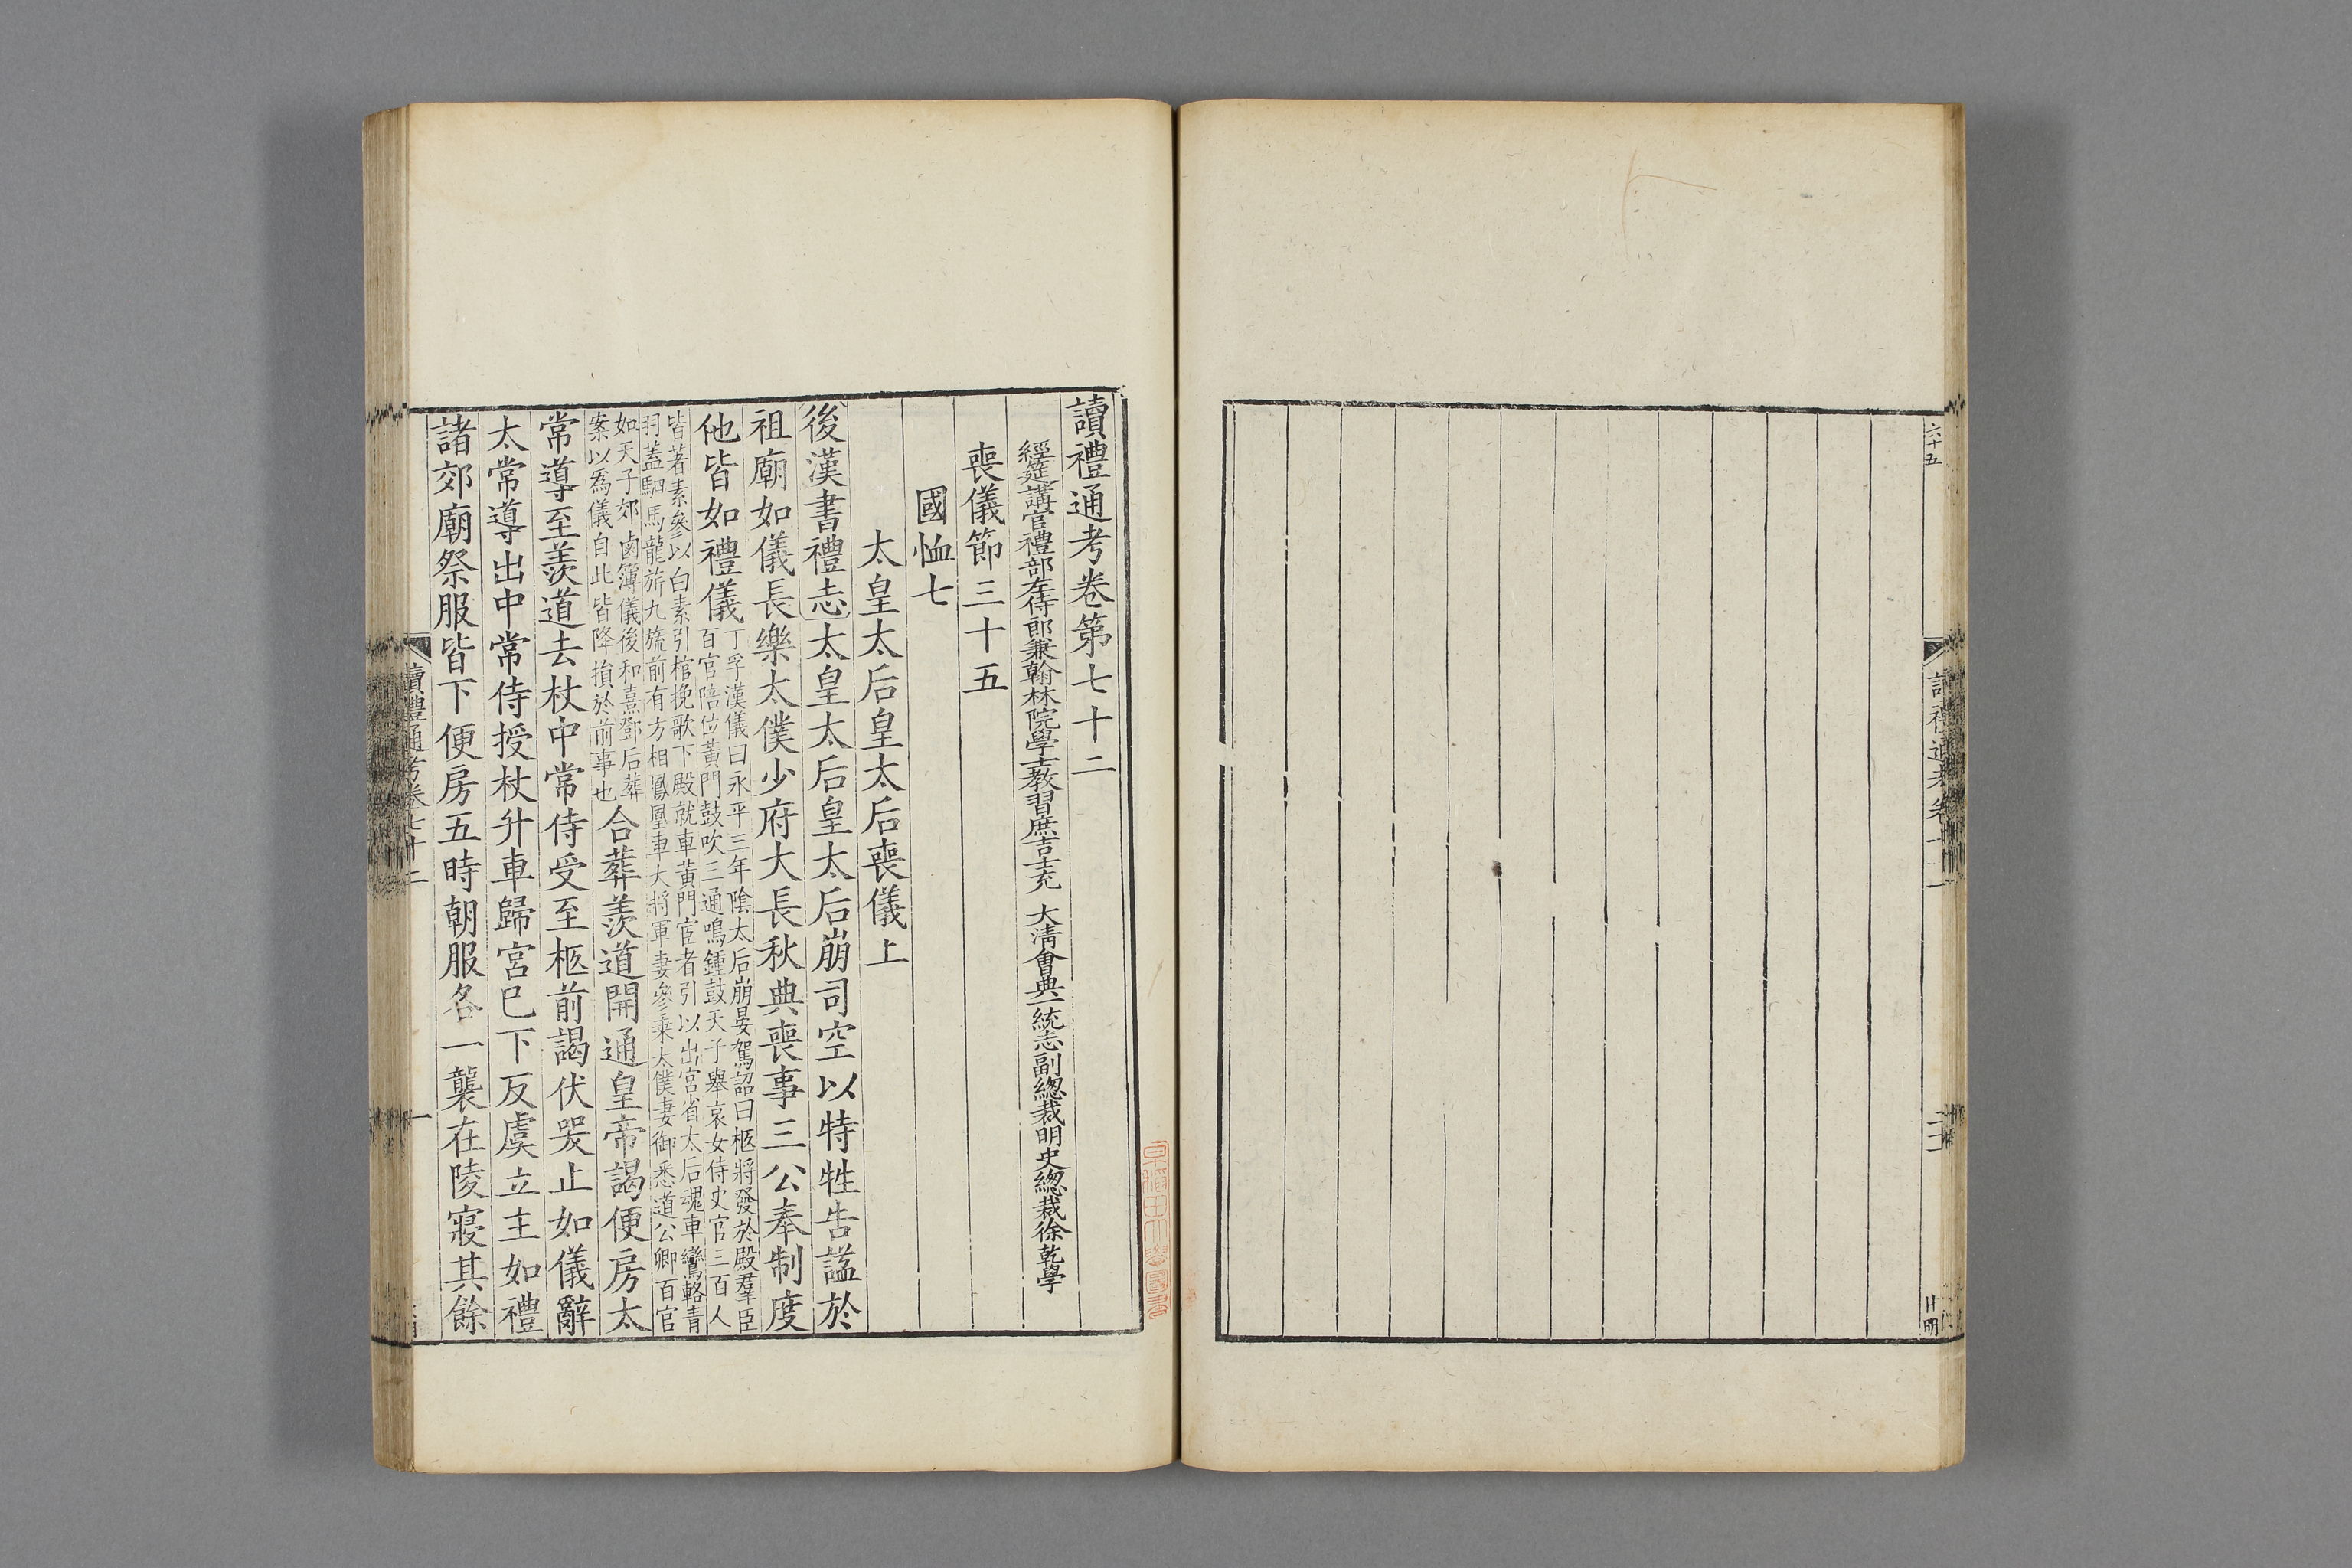 六十五
讀禮通考卷第七十二
經筵講官禮部左侍郎兼翰林院學士教習庶吉士充 大清會典一統志副總裁明史總裁徐乾學
喪儀節三十五
國恤七
太皇太后皇太后喪儀上
後漢書禮志太皇太后皇太后崩司空以特牲告謚於
祖廟如儀長樂太僕少府大長秋典喪事三公奉制度
他皆如禮儀
丁孚漢儀曰永平三年陰太后崩晏駕詔曰柩將發於殿羣臣
百官陪位黃門鼓吹三通鳴鍾鼓天子舉哀女侍史官三百人
皆著素參以白素引棺挽歌下殿就車黃門宦者引以出宮省太后魂車鸞輅青
羽蓋駟馬龍旂九旒前有方相鳳凰車大將軍妻參乘太僕妻御悉道公卿百官
如天子郊鹵簿儀後和熹鄧后葬
案以爲儀自此皆降損於前事也
合葬羨道開通皇帝謁便房太
常導至羨道去杖中常侍受至柩前謁伏哭止如儀辭
太常導出中常侍授杖升車歸宮已下反虞立主如禮
諸郊廟祭服皆下便房五時朝服各一襲在陵寢其餘
讀禮通考卷七十二
一